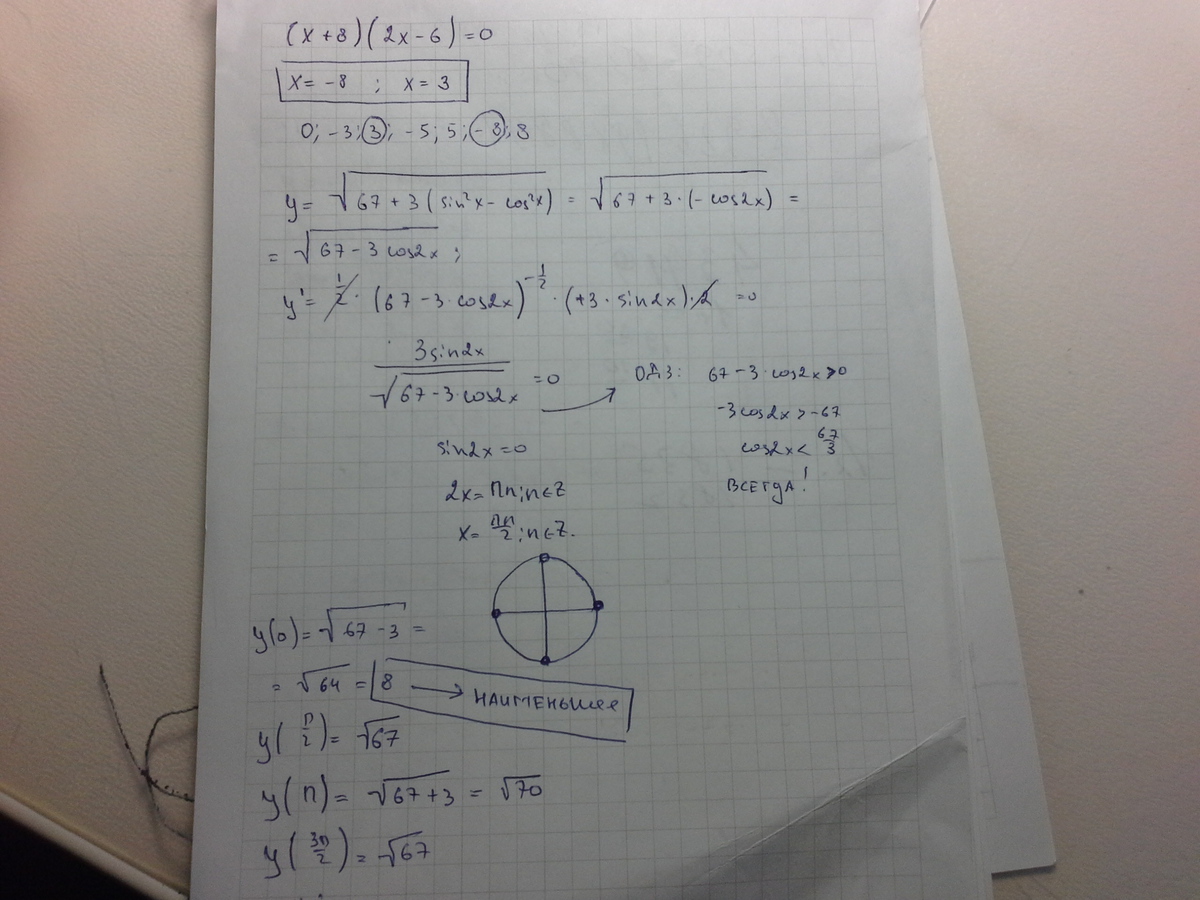 (x+8)(2x-6)=0
x=-8 ; x=3
0; -3; 3; -5; 5; -8; 8
y= √(67+3(sin²x-cos²x)) = √(67+3·(-cos2x)) =
= √(67-3cos2x);
y'= 1/2·(67-3·cos2x)^(-1/2)·(+3·sin2x)·2 =0
3sin2x/√(67-3·cos2x) =0
ОДЗ: 67-3·cos2x>0
-3cos2x>-67
cos2x<67/3
ВСЕГДА!
sin2x=0
2x=πn; n∈Z
x=πn/2; n∈Z.
y(0)=√(67-3) =
= √64 = 8 → НАИМЕНЬШЕЕ
y(π/2)= √67
y(π)= √(67+3) = √70
y(3π/2)= √67